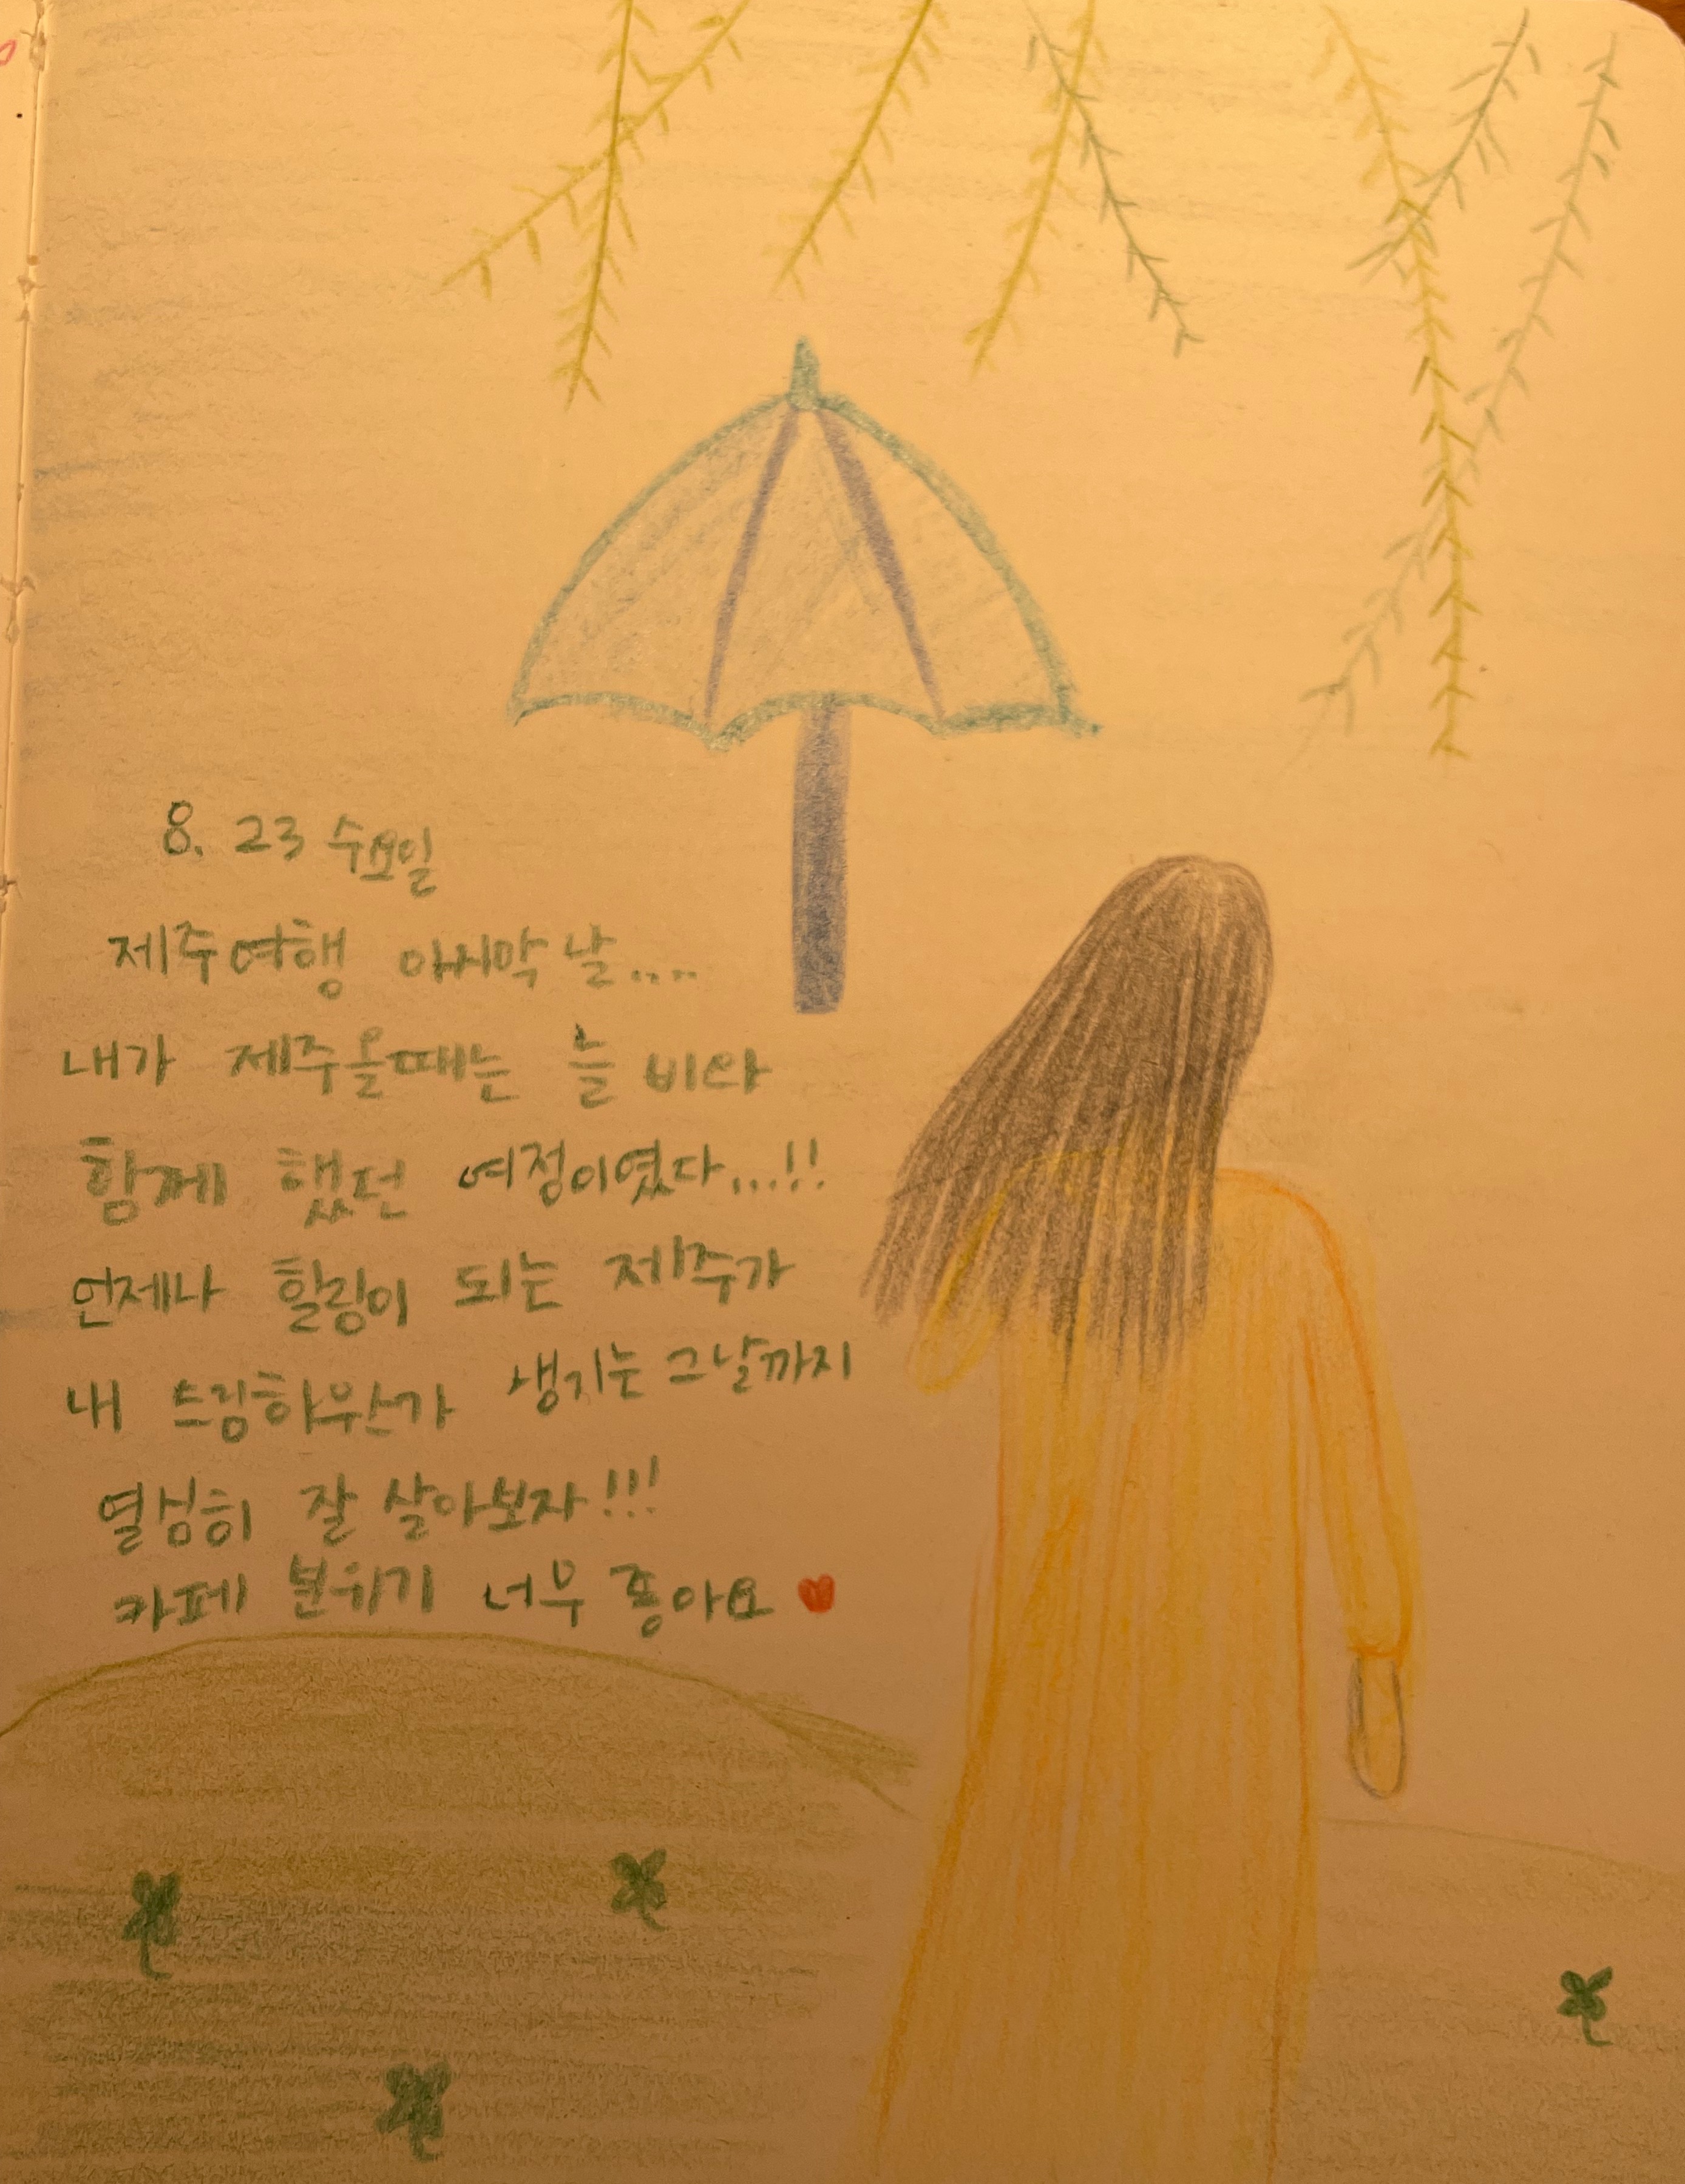 8. 23 수요일
제주여행 마지막 날....
내가 제주올때는 늘 비와
함께 했던 여정이였다...!!
언제나 힐링이 되는 제주가
내 드림하우스가 생기는 그날까지
열심히 잘 살아보자!!!
카페 분위기 너무 좋아요 ♥